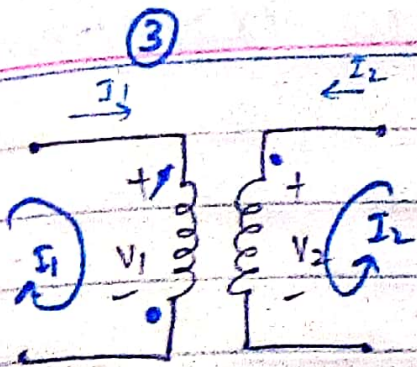 3
I1 I2
+ +
I1 V1 V2 I2
- -